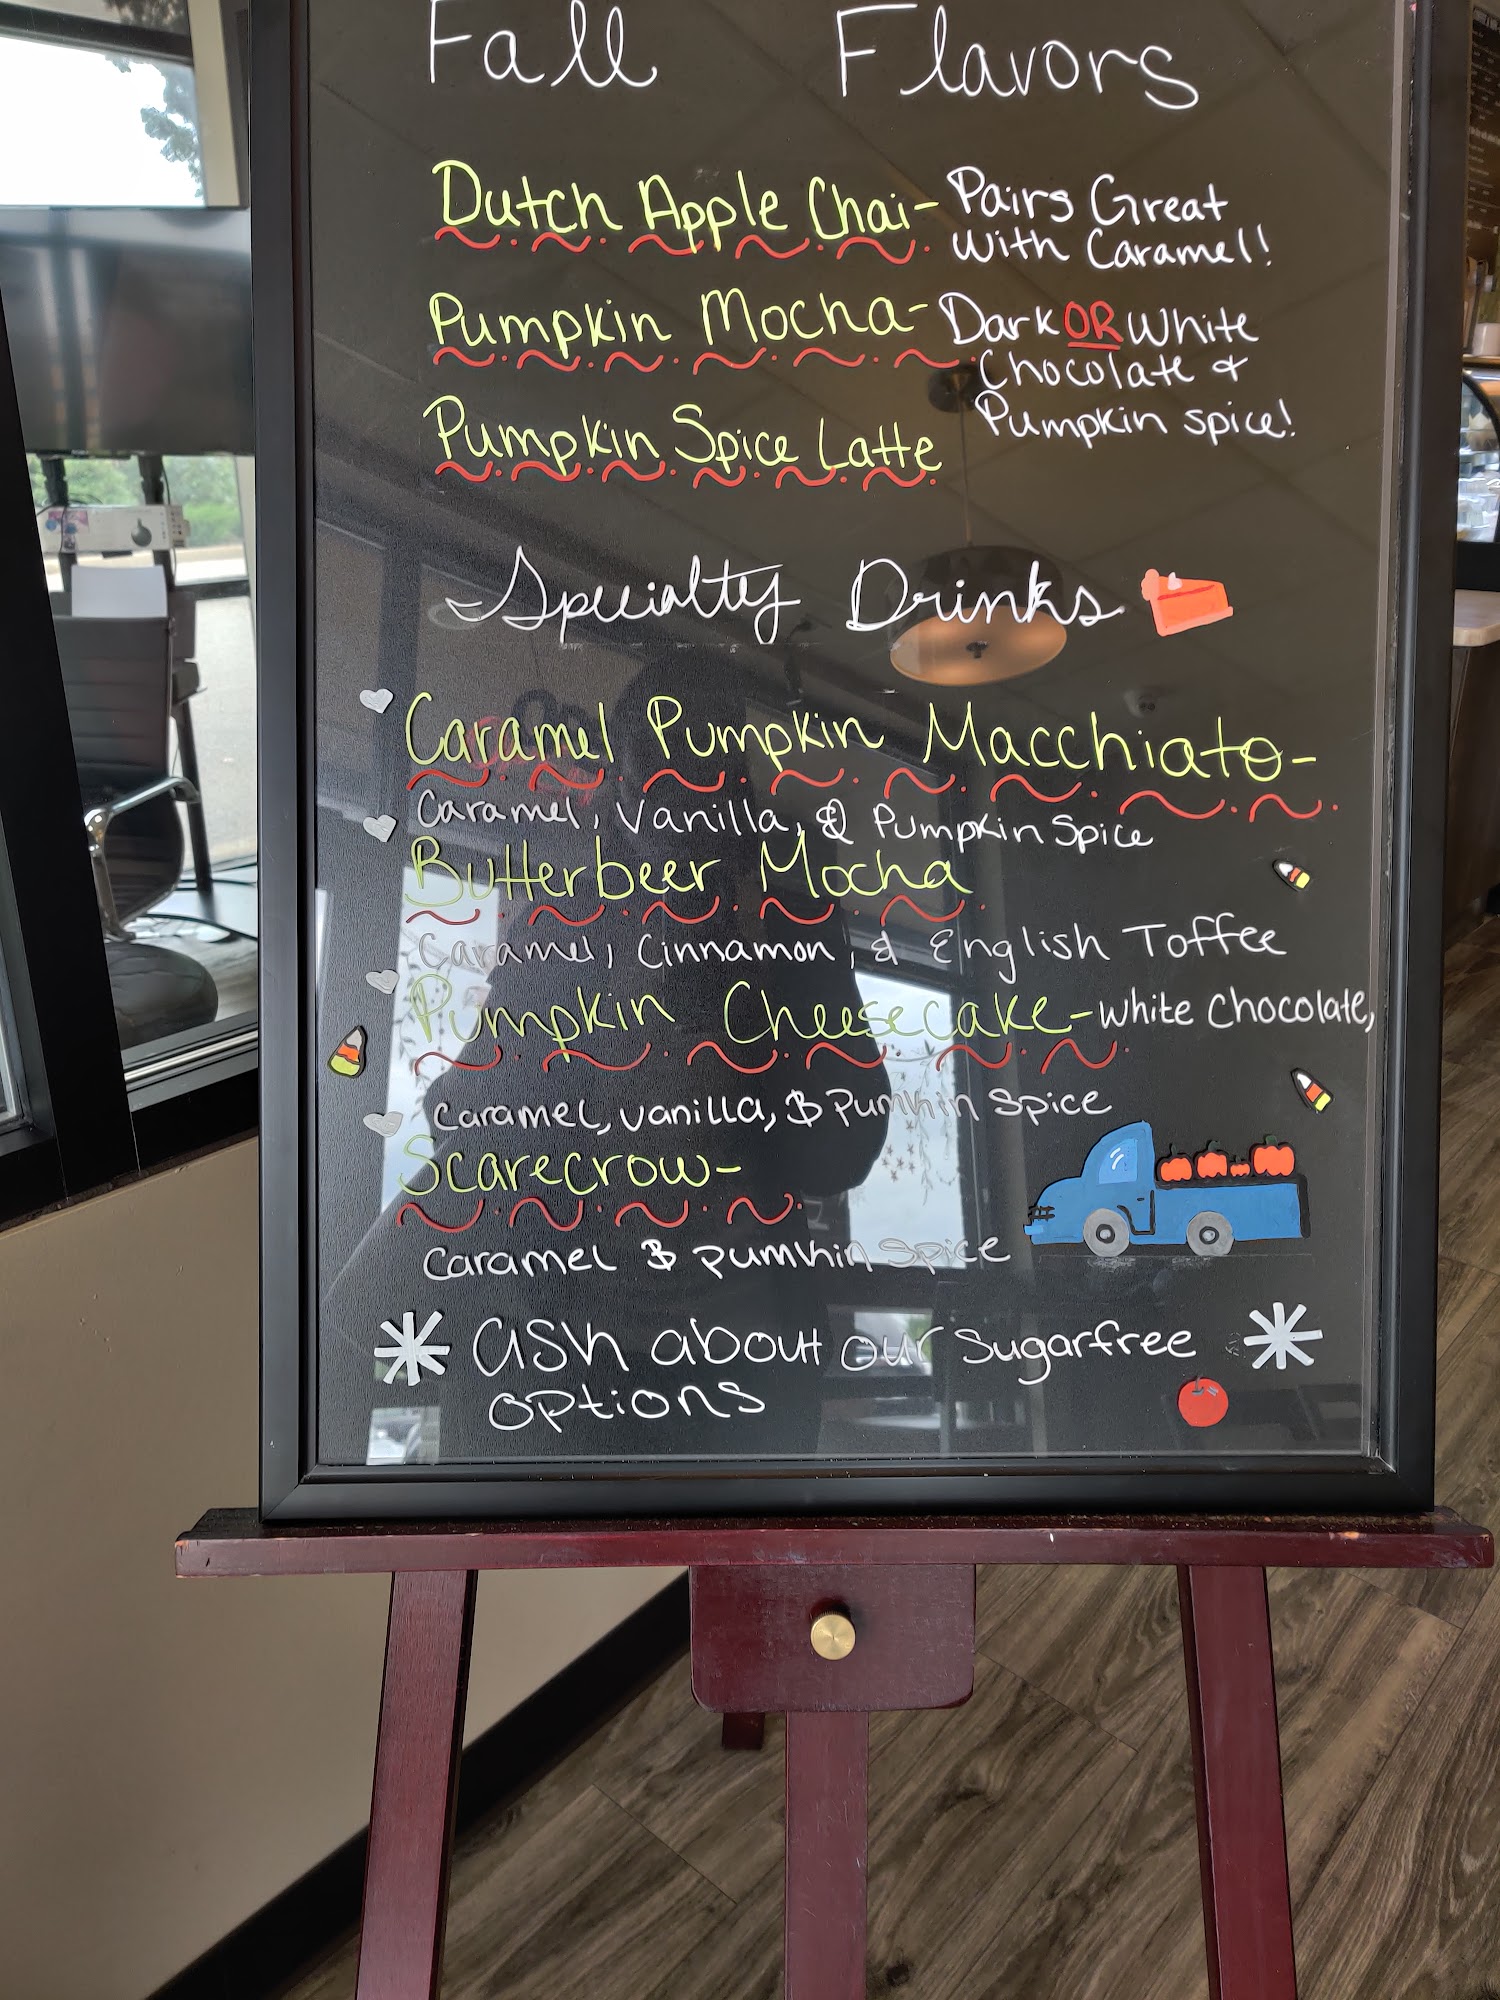 Fall Flavors
Dutch Apple Chai- Pairs Great
with Caramel!
Pumpkin Mocha- Dark OR White
Chocolate &
Pumpkin spice!
Pumpkin Spice Latte
Specialty Drinks
Caramel Pumpkin Macchiato-
Caramel, Vanilla, & Pumpkin Spice
Butterbeer Mocha
Caramel, Cinnamon, & English Toffee
Pumpkin Cheesecake- White Chocolate,
Caramel, vanilla, & Pumpkin Spice
Scarecrow-
Caramel & pumpkin Spice
ask about our sugarfree
options